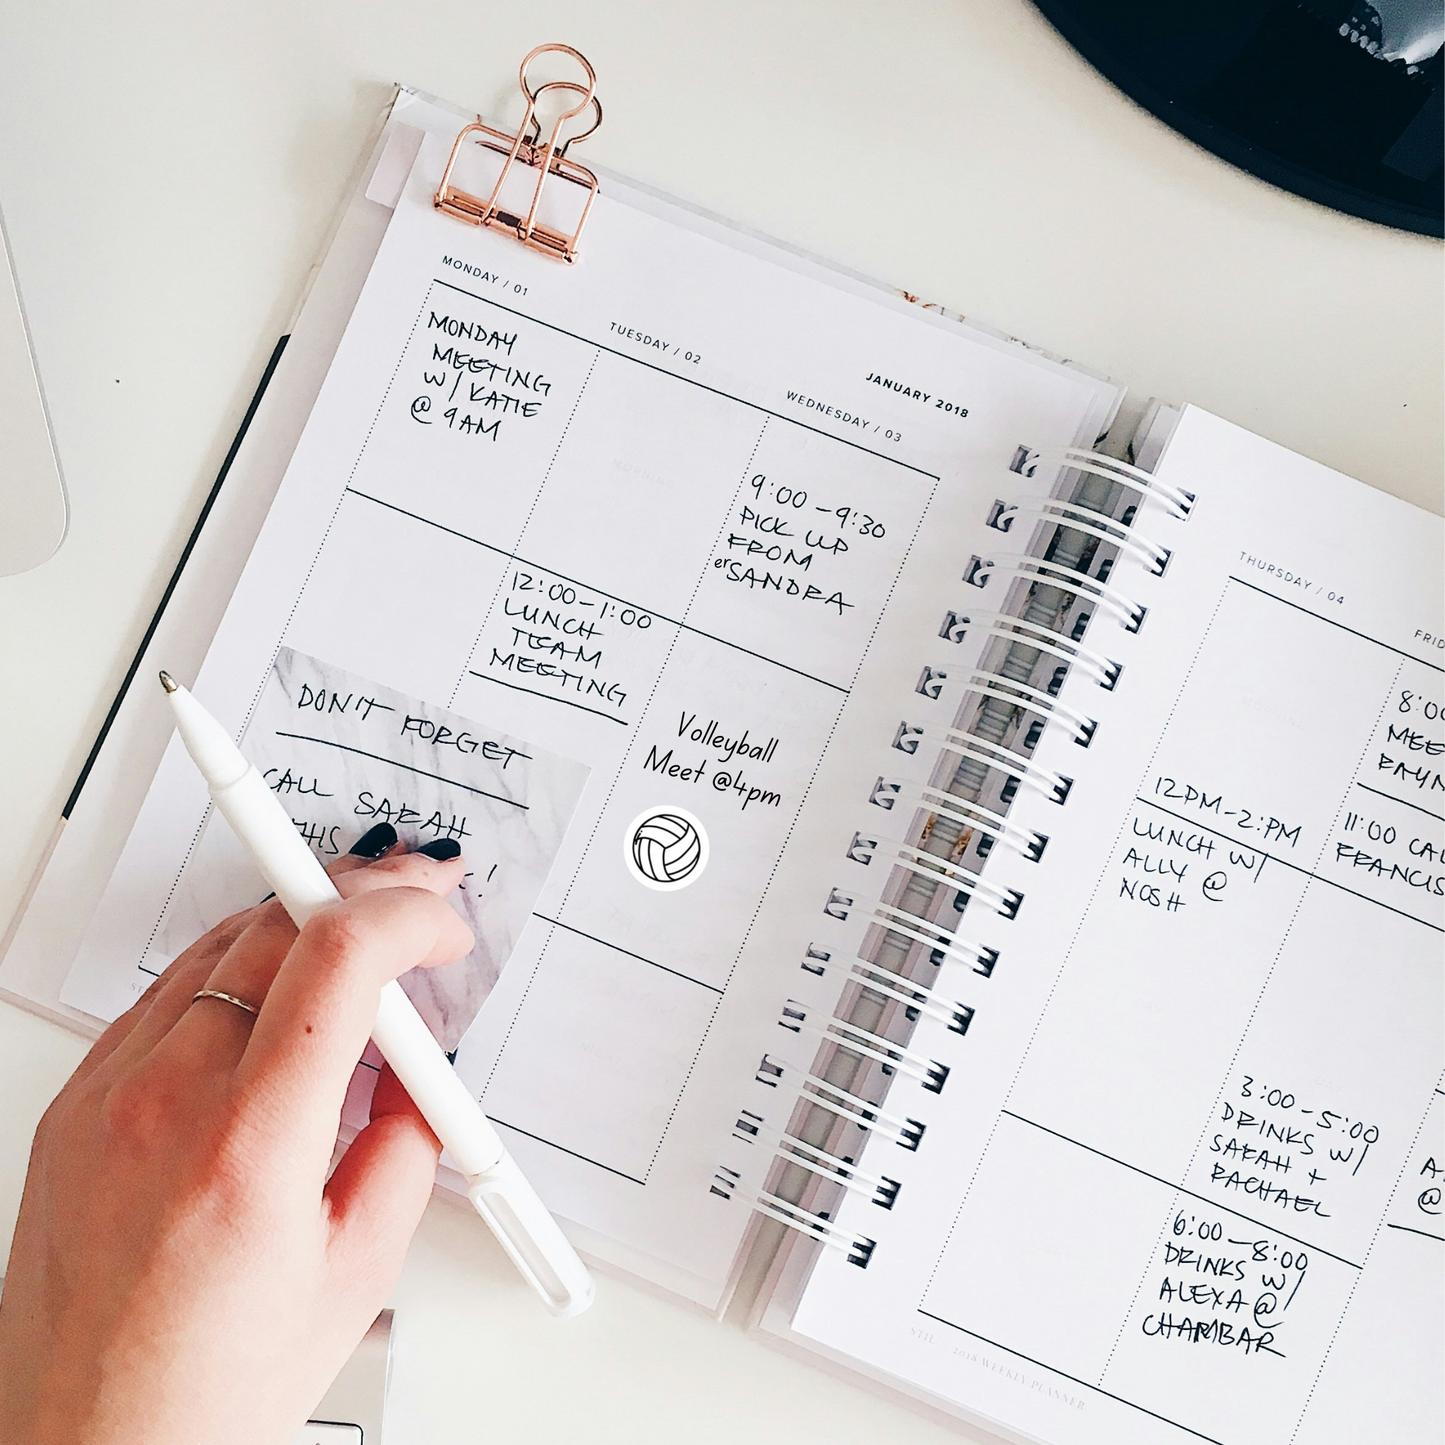 MONDAY / 01
MONDAY
MEETING
W/ KATIE
@ 9AM
TUESDAY / 02
12:00-1:00
LUNCH
TEAM
MEETING
JANUARY 2018
WEDNESDAY / 03
9:00-9:30
PICK UP
FROM
erSANDRA
Volleyball
Meet @4pm
DON'T FORGET
CALL SARAH
THIS
!
THURSDAY / 04
12PM-2:PM
LUNCH W/
ALLY @
NOSH
3:00-5:00
DRINKS W/
SARAH +
RACHAEL
6:00-8:00
DRINKS W/
ALEXA @
CHAMBAR
FRID
8:0
MEE
11:00 CAL
FRANCIS
A
@
STIL 2018 WEEKLY PLANNER